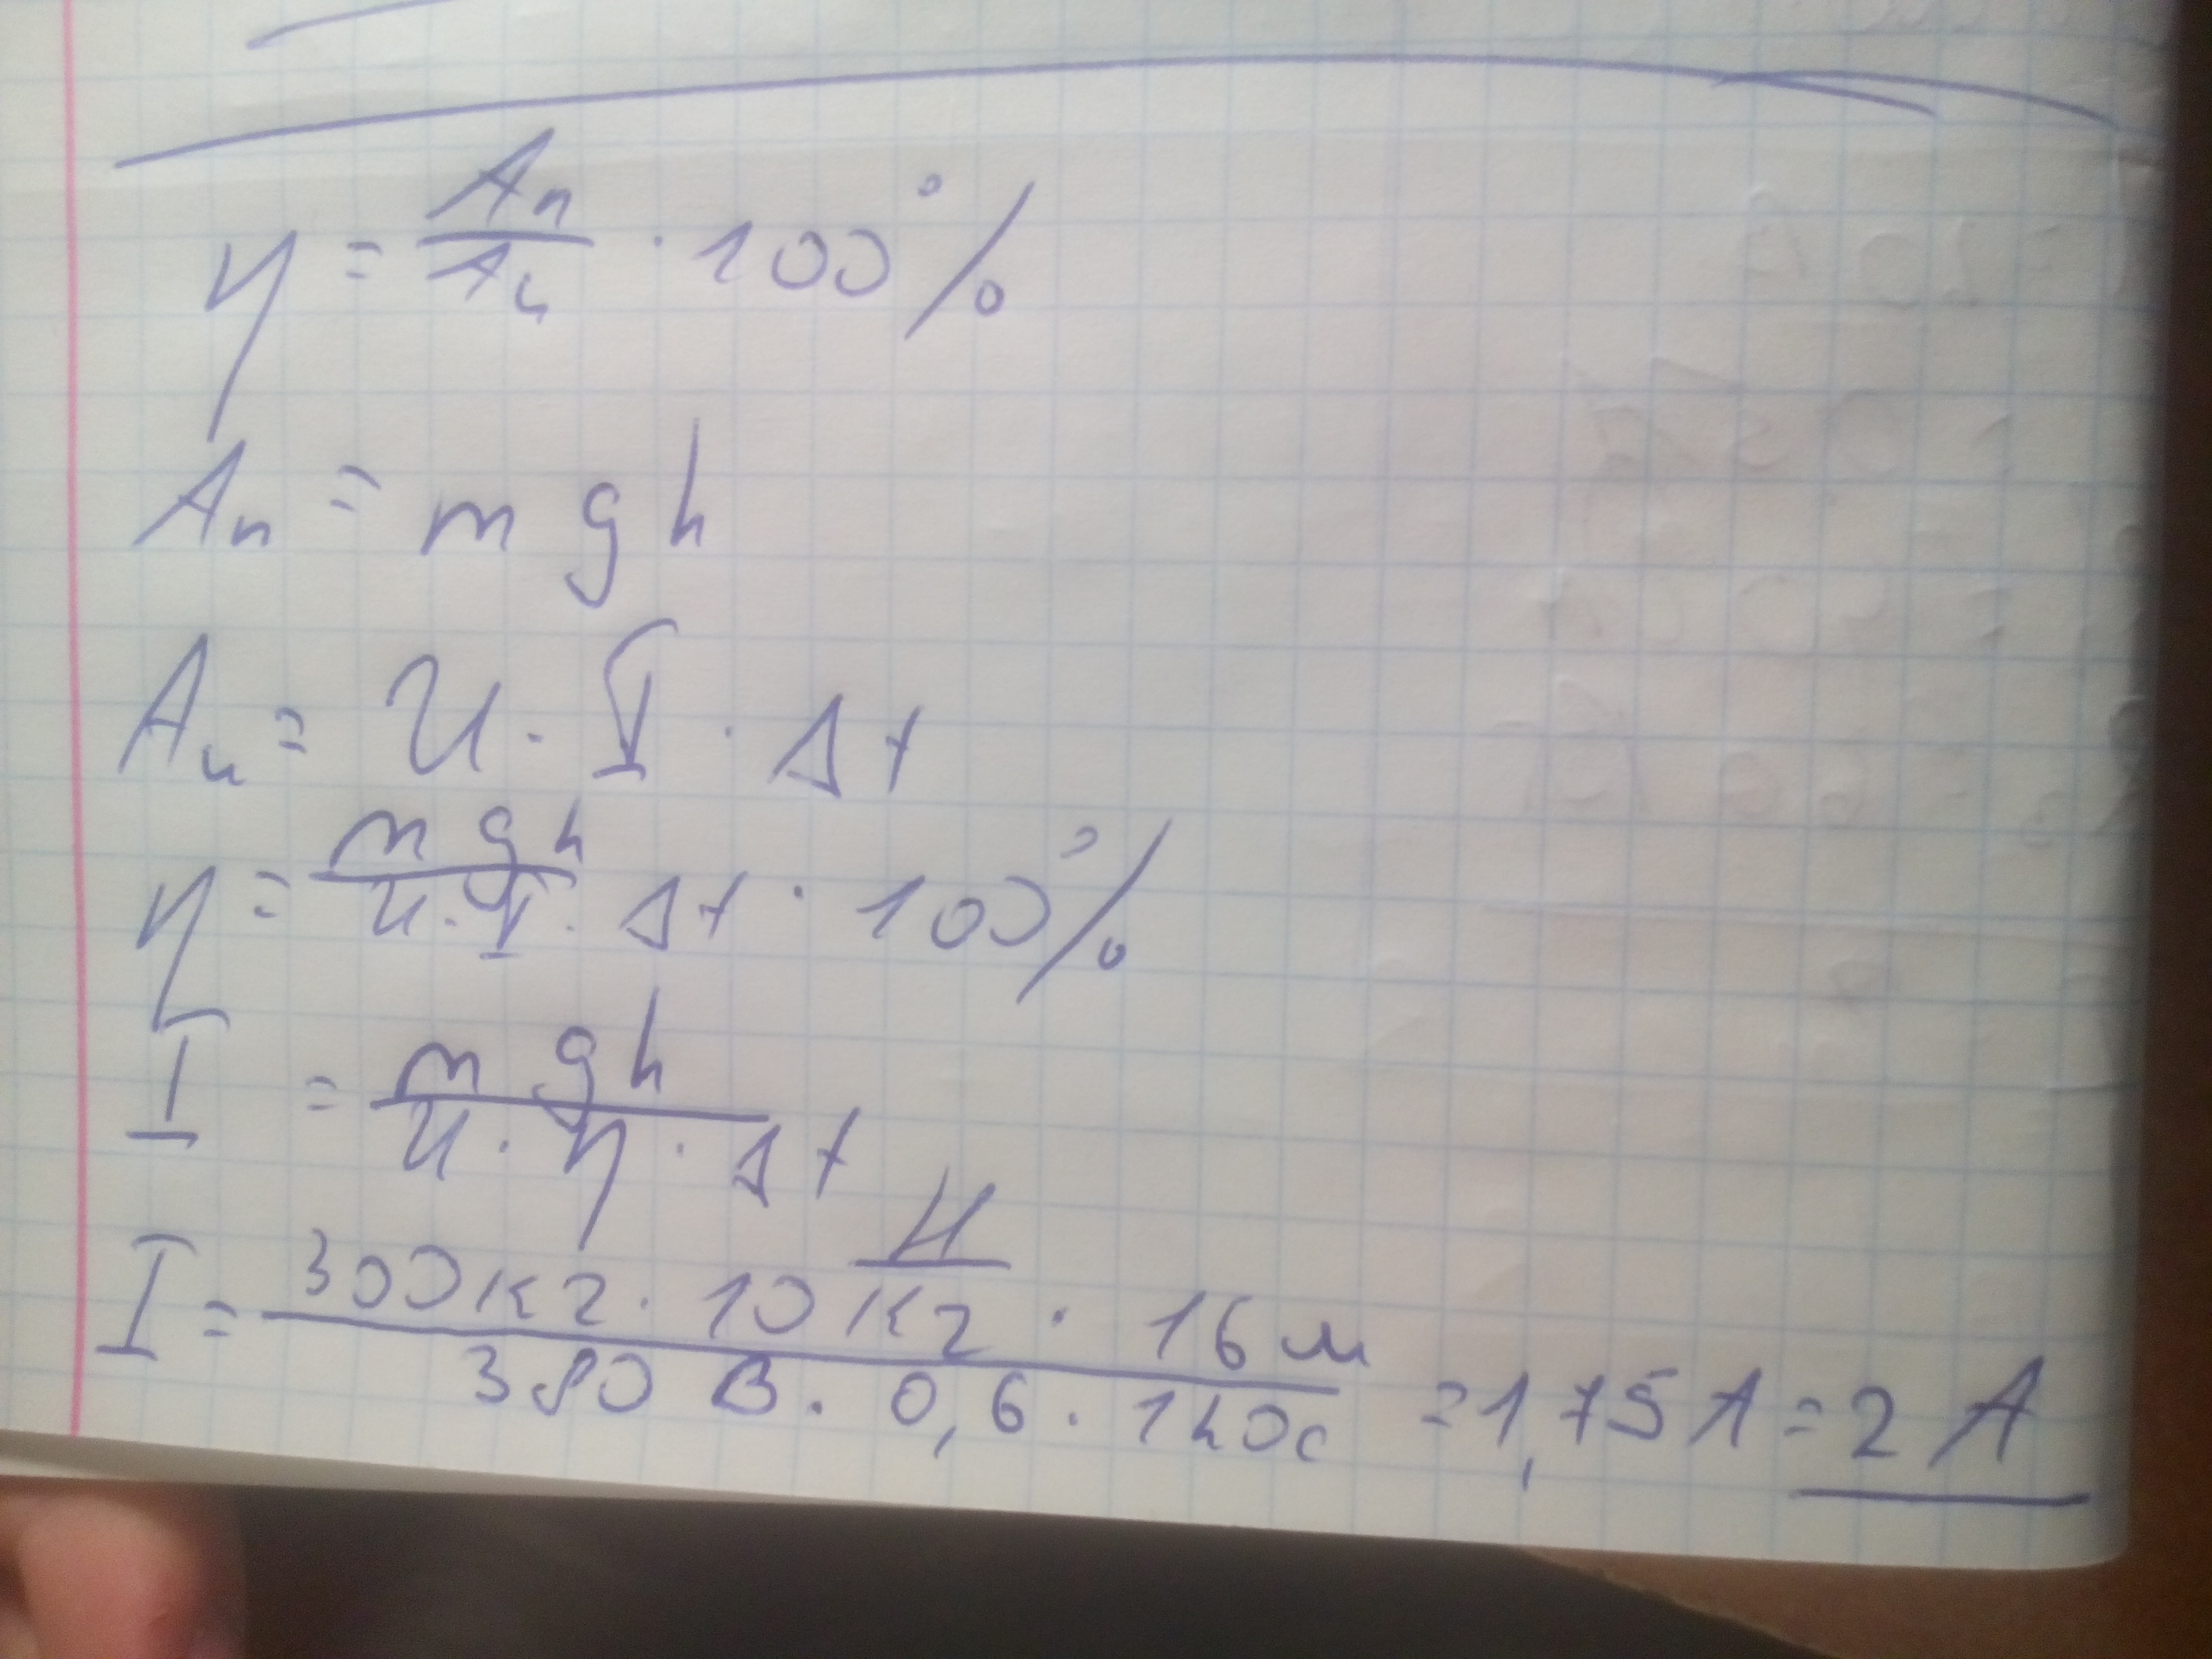 η = Aп/Aи · 100%
Aп = mgh
Aи = U · I · Δt
η = mgh/U·I·Δt · 100%
I = mgh/U·η·Δt
I = 300кг · 10 Н/кг · 16 м/380 В · 0,6 · 120с = 1,75 A = 2 A